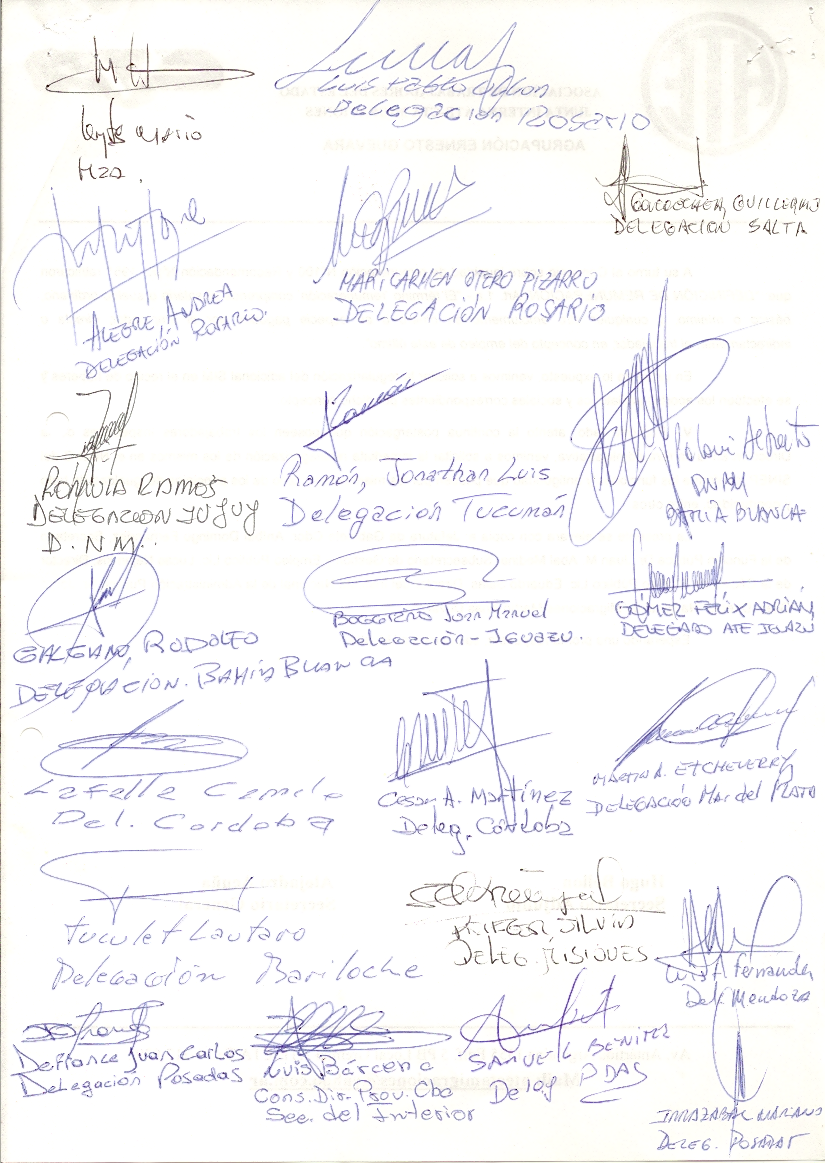 Mario
Mza.
Luis Pablo
Delegacion Rosario
GUILLERMO
DELEGACION SALTA
ALEGRE, ANDREA
DELEGACIÓN ROSARIO.
MARICARMEN OTERO PIZARRO
DELEGACIÓN ROSARIO
ROMULA RAMOS
DELEGACION JUJUY
D.N.M.
Ramón
Ramón, Jonathan Luis
Delegación Tucumán
Alberto
BAHÍA BLANCA
GALGANO, RODOLFO
DELEGACION. BAHÍA BLANCA
Juan Manuel
Delegación - IGUAZU.
GÓMEZ FÉLIX ADRIÁN
DELEGADO ATE IGUAZÚ
Lafalla Camilo
Del. Cordoba
Cesar A. Martínez
Deleg. Córdoba
MARTIN A. ETCHEVERRY
DELEGACIÓN Mar del PLATA
Tuculet Lautaro
Delegación Bariloche
SILVIA
DELEG. MISIONES
Luis A. Fernandez
Del. Mendoza
Defrance Juan Carlos
Delegación Posadas
Luis Bárcena
Cons. Dir. Prov. Cba
Sec. del Interior
SAMUEL BENITEZ
Deleg PDAS
IRRAZABAL MARIANO
DELEG. POSADAS
AGRUPACIÓN ERNESTO